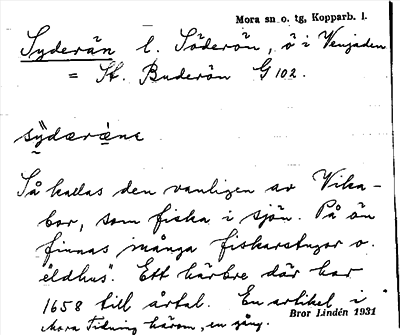 Mora sn o. tg, Kopparb. l.
Syderän l. Söderön, ö i Venjaden
= St. Buderön G 102.
sÿdæræ̣ne
Så kallas den vanligen av Vika-
bor, som fiska i sjön. På ön
finnas många fiskarstugor o.
"eldhus". Ett härbre där har
1658 till årtal. En artikel i
Mora Tidning härom, en gång.
Bror Lindén 1931